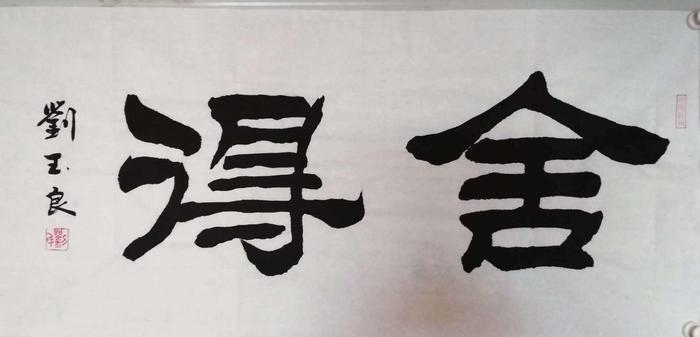 舍得
劉玉良